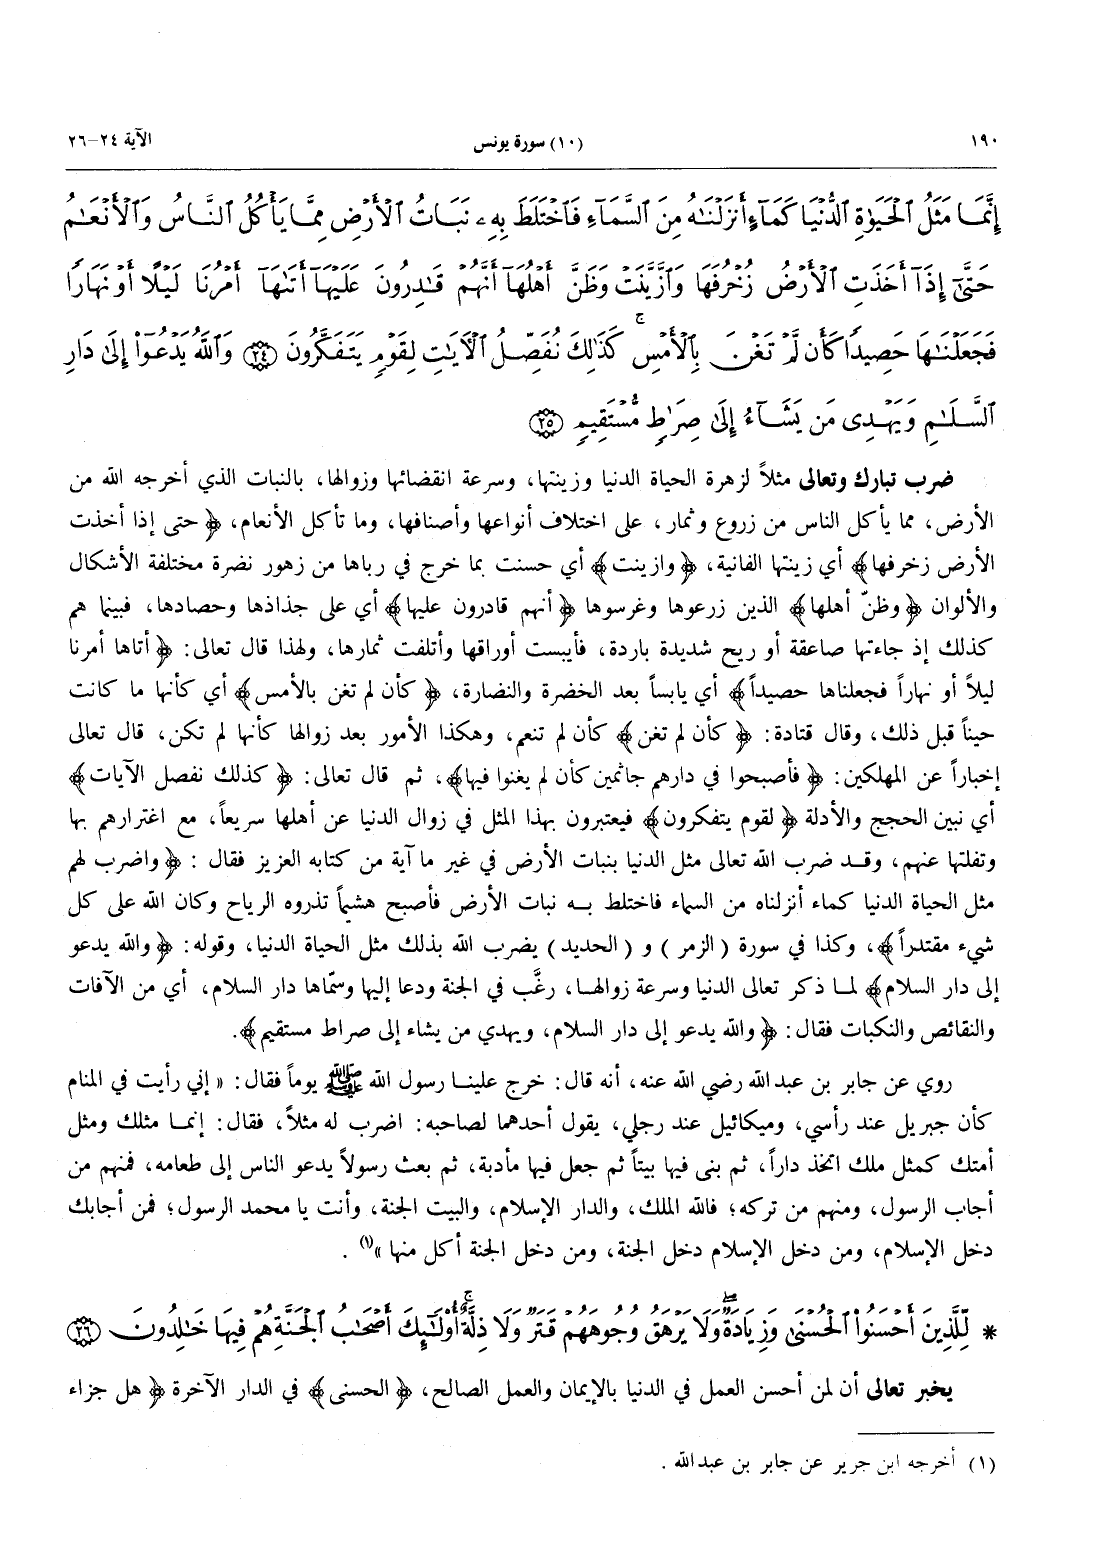 ١٩٠ (١٠) سورة يونس الآية ٢٤-٢٦
إِنَّمَا مَثَلُ ٱلْحَيَوٰةِ ٱلدُّنْيَا كَمَآءٍ أَنزَلْنَـٰهُ مِنَ ٱلسَّمَآءِ فَٱخْتَلَطَ بِهِۦ نَبَاتُ ٱلْأَرْضِ مِمَّا يَأْكُلُ ٱلنَّاسُ وَٱلْأَنْعَـٰمُ
حَتَّىٰٓ إِذَآ أَخَذَتِ ٱلْأَرْضُ زُخْرُفَهَا وَٱزَّيَّنَتْ وَظَنَّ أَهْلُهَآ أَنَّهُمْ قَـٰدِرُونَ عَلَيْهَآ أَتَىٰهَآ أَمْرُنَا لَيْلًا أَوْ نَهَارًا
فَجَعَلْنَـٰهَا حَصِيدًا كَأَن لَّمْ تَغْنَ بِٱلْأَمْسِ ۚ كَذَٰلِكَ نُفَصِّلُ ٱلْأَيَـٰتِ لِقَوْمٍ يَتَفَكَّرُونَ ﴿٢٤﴾ وَٱللَّهُ يَدْعُوٓا۟ إِلَىٰ دَارِ
ٱلسَّلَـٰمِ وَيَهْدِى مَن يَشَآءُ إِلَىٰ صِرَٰطٍ مُّسْتَقِيمٍ ﴿٢٥﴾
ضرب تبارك وتعالى مثلاً لزهرة الحياة الدنيا وزينتها، وسرعة انقضائها وزوالها، بالنبات الذي أخرجه الله من
الأرض، مما يأكل الناس من زروع وثمار، على اختلاف أنواعها وأصنافها، وما تأكل الأنعام، ﴿حتى إذا أخذت
الأرض زخرفها﴾ أي زينتها الفانية، ﴿وازينت﴾ أي حسنت بما خرج في رباها من زهور نضرة مختلفة الأشكال
والألوان ﴿وظنّ أهلها﴾ الذين زرعوها وغرسوها ﴿أنهم قادرون عليها﴾ أي على جذاذها وحصادها، فبينما هم
كذلك إذ جاءتها صاعقة أو ريح شديدة باردة، فأيبست أوراقها وأتلفت ثمارها، ولهذا قال تعالى: ﴿أتاها أمرنا
ليلاً أو نهاراً فجعلناها حصيداً﴾ أي يابساً بعد الخضرة والنضارة، ﴿كأن لم تغن بالأمس﴾ أي كأنها ما كانت
حيناً قبل ذلك، وقال قتادة: ﴿كأن لم تغن﴾ كأن لم تنعم، وهكذا الأمور بعد زوالها كأنها لم تكن، قال تعالى
إخباراً عن المهلكين: ﴿فأصبحوا في دارهم جاثمين كأن لم يغنوا فيها﴾، ثم قال تعالى: ﴿كذلك نفصل الآيات﴾
أي نبين الحجج والأدلة ﴿لقوم يتفكرون﴾ فيعتبرون بهذا المثل في زوال الدنيا عن أهلها سريعاً، مع اغترارهم بها
وتفلتها عنهم، وقد ضرب الله تعالى مثل الدنيا بنبات الأرض في غير ما آية من كتابه العزيز فقال: ﴿واضرب لهم
مثل الحياة الدنيا كماء أنزلناه من السماء فاختلط به نبات الأرض فأصبح هشيماً تذروه الرياح وكان الله على كل
شيء مقتدراً﴾، وكذا في سورة (الزمر) و (الحديد) يضرب الله بذلك مثل الحياة الدنيا، وقوله: ﴿والله يدعو
إلى دار السلام﴾ لما ذكر تعالى الدنيا وسرعة زوالها، رغَّب في الجنة ودعا إليها وسمّاها دار السلام، أي من الآفات
والنقائص والنكبات فقال: ﴿والله يدعو إلى دار السلام، ويهدي من يشاء إلى صراط مستقيم﴾.
روي عن جابر بن عبد الله رضي الله عنه، أنه قال: خرج علينا رسول الله ﷺ يوماً فقال: « إني رأيت في المنام
كأن جبريل عند رأسي، وميكائيل عند رجلي، يقول أحدهما لصاحبه: اضرب له مثلاً، فقال: إنما مثلك ومثل
أمتك كمثل ملك اتخذ داراً، ثم بنى فيها بيتاً ثم جعل فيها مأدبة، ثم بعث رسولاً يدعو الناس إلى طعامه، فمنهم من
أجاب الرسول، ومنهم من تركه؛ فالله الملك، والدار الإسلام، والبيت الجنة، وأنت يا محمد الرسول؛ فمن أجابك
دخل الإسلام، ومن دخل الإسلام دخل الجنة، ومن دخل الجنة أكل منها »(١) .
* لِّلَّذِينَ أَحْسَنُوا۟ ٱلْحُسْنَىٰ وَزِيَادَةٌ ۖ وَلَا يَرْهَقُ وُجُوهَهُمْ قَتَرٌ وَلَا ذِلَّةٌ ۚ أُو۟لَـٰٓئِكَ أَصْحَـٰبُ ٱلْجَنَّةِ هُمْ فِيهَا خَـٰلِدُونَ ﴿٢٦﴾
يخبر تعالى أن لمن أحسن العمل في الدنيا بالإيمان والعمل الصالح، ﴿الحسنى﴾ في الدار الآخرة ﴿هل جزاء
(١) أخرجه ابن جرير عن جابر بن عبد الله .